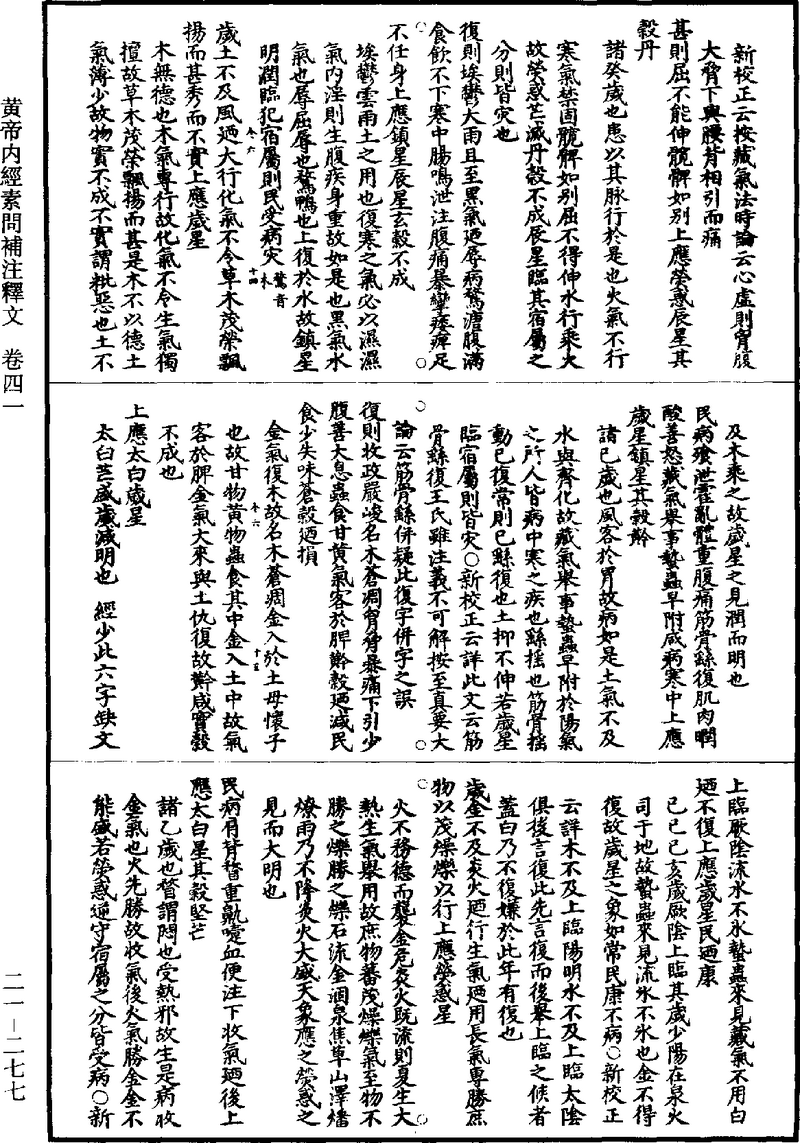 黄帝内經素問補注釋文　卷四一
二一—二七七
新校正云按藏氣法時論云心虚則胷腹
大脅下與腰背相引而痛
甚則屈不能伸髖髀如别上應熒惑辰星其
穀丹
諸癸歲也患以其脉行於是也火氣不行
寒氣禁固髖髀如别屈不得伸水行乘火
故熒惑芒減丹穀不成辰星臨其宿屬之
分則皆灾也
復則埃鬱大雨且至黑氣廼辱病鶩溏腹滿
食飲不下寒中腸鳴泄注腹痛暴攣痿痺足
不任身上應鎮星辰星玄穀不成
埃鬱雲雨土之用也復寒之氣必以濕濕
氣内淫則生腹疾身重故如是也黑氣水
氣也辱屈辱也鶩鴨也上復於水故鎮星
明潤臨犯宿屬則民受病灾 鶩音木 十四
卷六
歲土不及風廼大行化氣不令草木茂榮飄
揚而甚秀而不實上應歲星
木無德也木氣專行故化氣不令生氣獨
擅故草木茂榮飄揚而甚是木不以德土
氣薄少故物實不成不實謂粃惡也土不
及木乘之故歲星之見潤而明也
民病飱泄霍亂體重腹痛筋骨繇復肌肉瞤
酸善怒藏氣舉事蟄蟲早附咸病寒中上應
歲星鎮星其穀黅
諸已歲也風客於胃故病如是土氣不及
水與齊化故藏氣舉事蟄蟲早附於陽氣
之所人皆病中寒之疾也繇揺也筋骨揺
動已復常則已繇復也土抑不伸若歲星
臨宿屬則皆灾○新校正云詳此文云筋
骨繇復王氏雖注義不可解按至真要大
論云筋骨繇併疑此復字併字之誤
復則收政嚴峻名木蒼凋胷脅暴痛下引少
腹善大息蟲食甘黄氣客於脾黅穀廼減民
食少失味蒼穀廼損
金氣復木故名木蒼凋金入於土母懷子 十五
卷六
也故甘物黄物蟲食其中金入土中故氣
客於脾金氣大來與土仇復故黅咸實穀
不成也
上應太白歲星
太白芒盛歲減明也　經少此六字缺文
上臨厥陰流水不氷蟄蟲來見藏氣不用白
廼不復上應歲星民廼康
已已已亥歲厥陰上臨其歲少陽在泉火
司于地故蟄蟲來見流水不氷也金不得
復故歲星之象如常民康不病○新校正
云詳木不及上臨陽明水不及上臨太陰
俱後言復此先言復而後舉上臨之候者
蓋白乃不復嫌於此年有復也
歲金不及炎火廼行生氣廼用長氣專勝庶
物以茂燥爍以行上應熒惑星
火不務德而襲金危炎火既流則夏生大
熱生氣舉用故庶物蕃茂燥爍氣至物不
勝之爍勝之爍石流金涸泉焦草山澤燔
燎雨乃不降炎火大盛天象應之熒惑之
見而大明也
民病肩背瞀重鼽嚏血便注下收氣廼後上
應太白星其穀堅芒
諸乙歲也瞀謂悶也受熱邪故生是病收
金氣也火先勝故收氣後火氣勝金金不
能盛若熒惑逆守宿屬之分皆受病○新